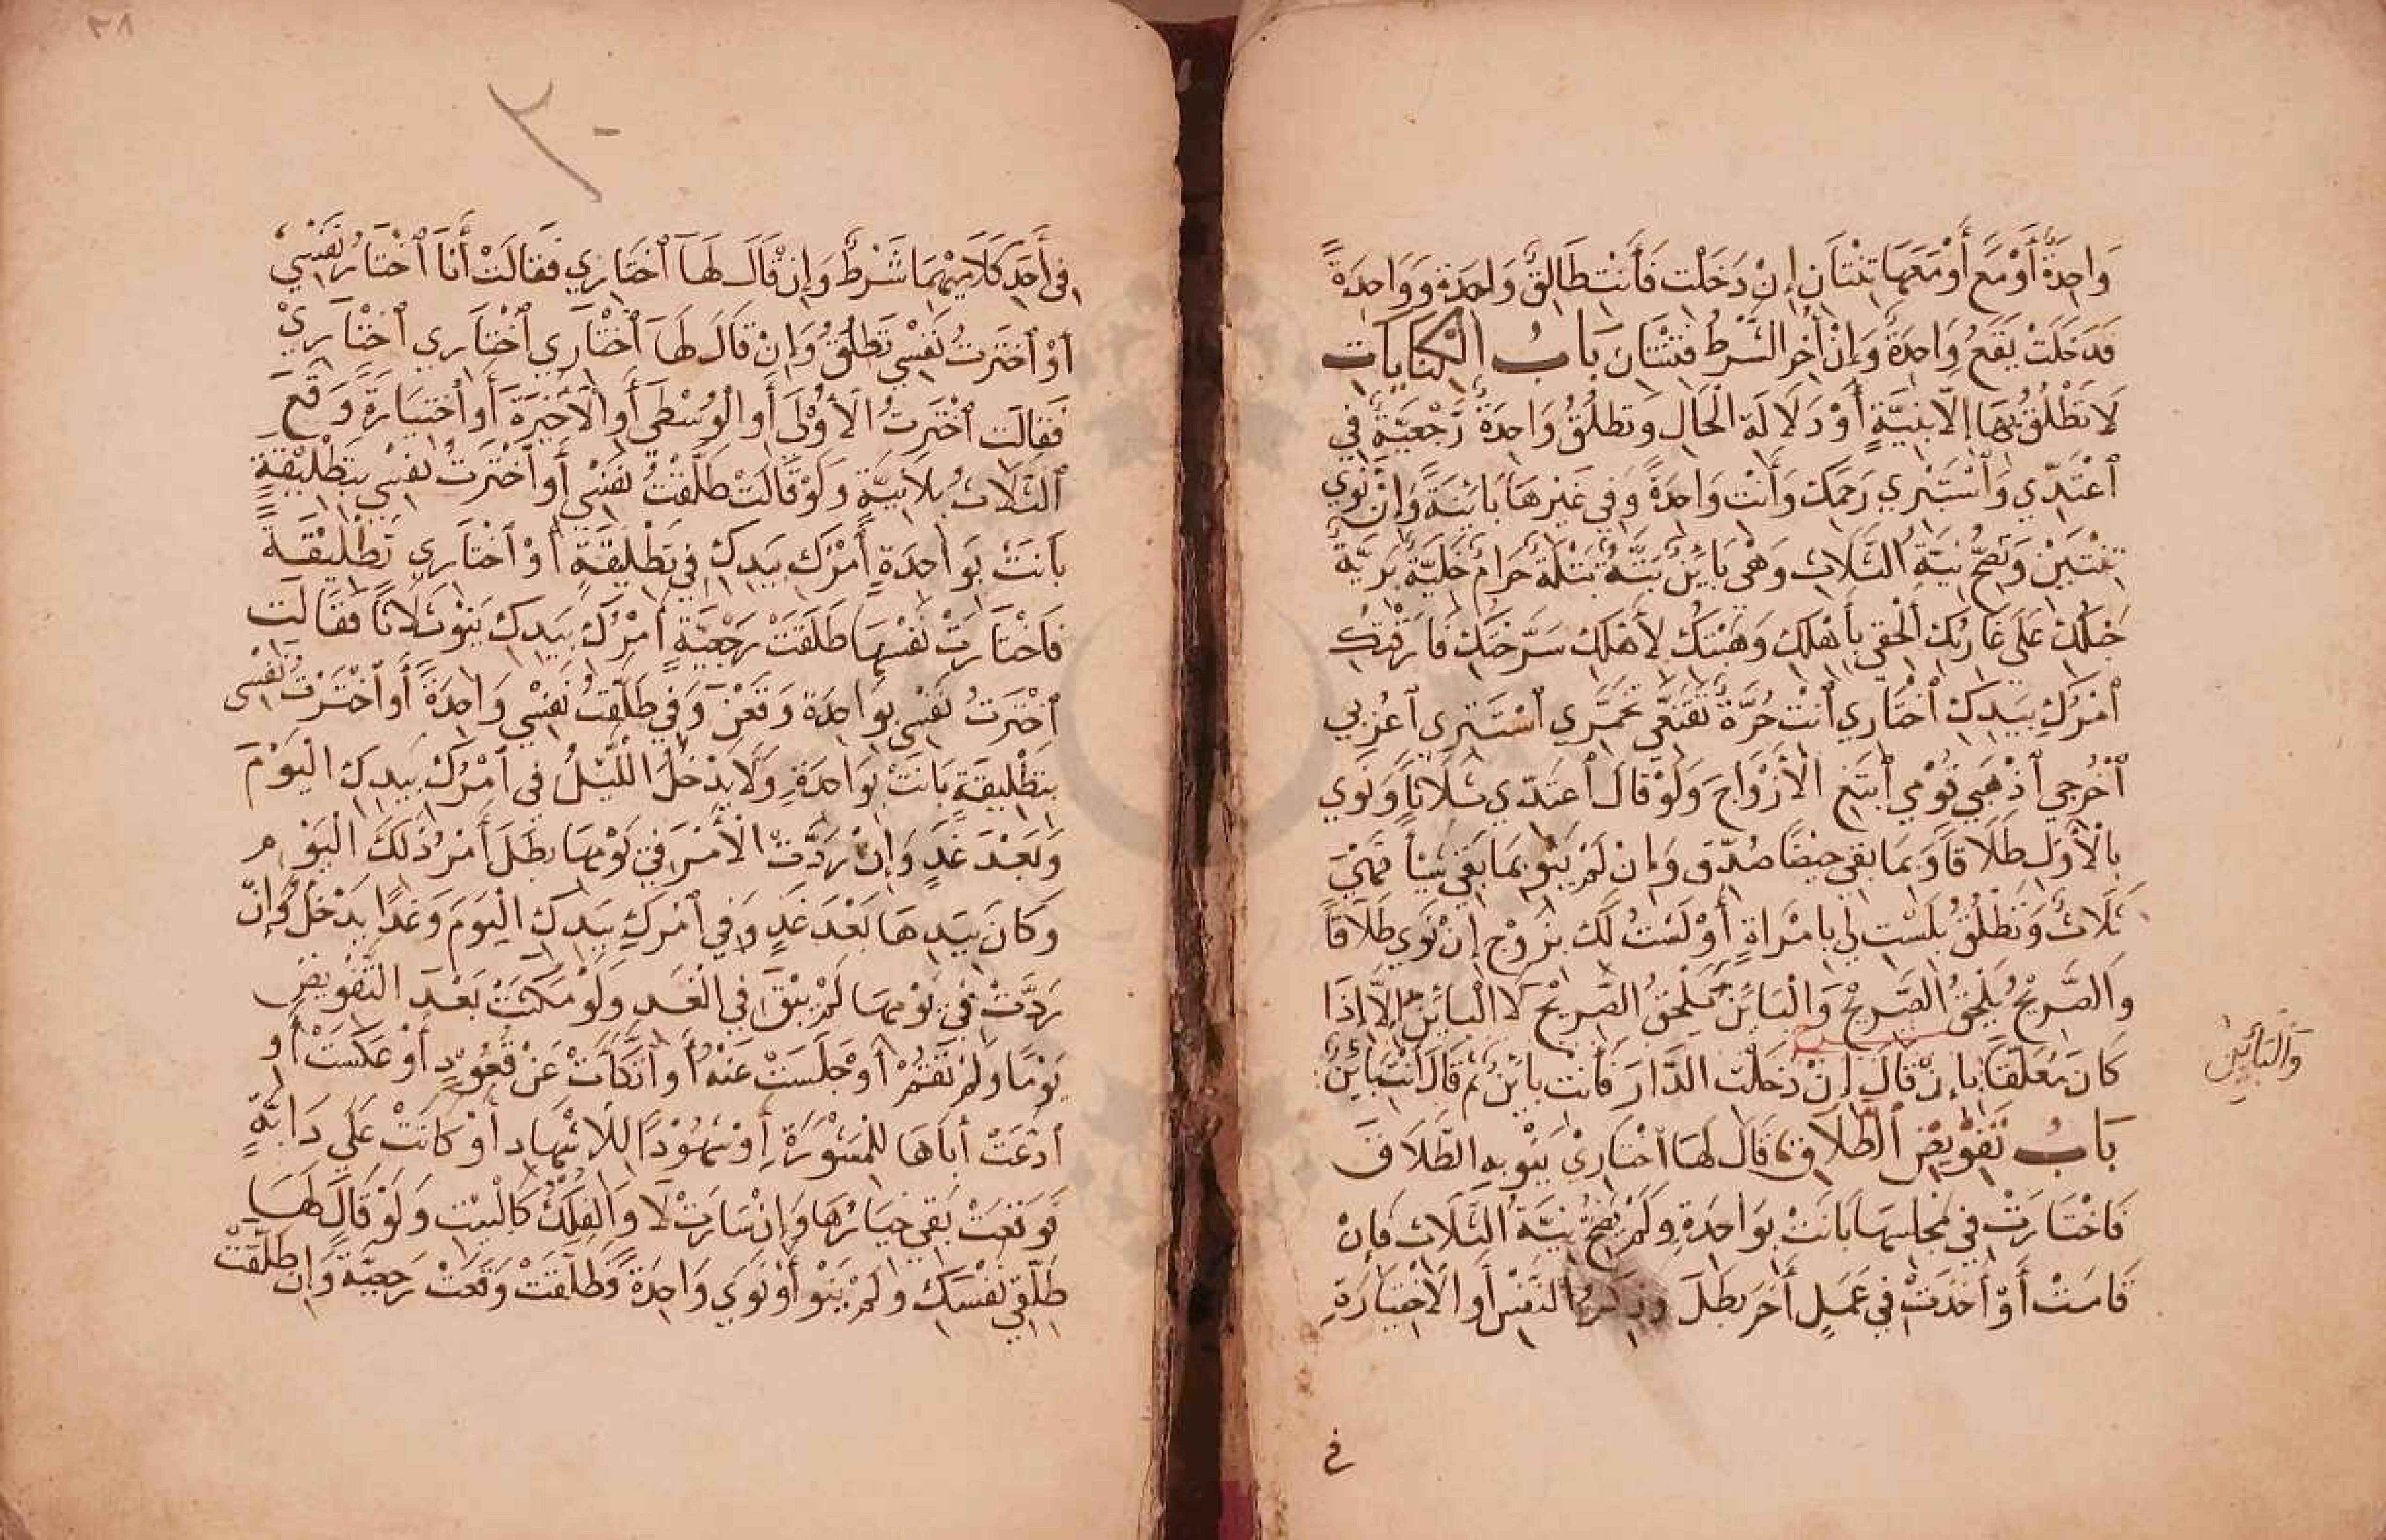 وَاحِدَةٌ أَوْ مَعَ أَوْ مَعَهَا ثِنْتَانِ إِنْ دَخَلْتِ فَأَنْتِ طَالِقٌ وَاحِدَةً وَوَاحِدَةً
فَدَخَلَتْ يَقَعُ وَاحِدَةٌ وَإِنْ أَخَّرَ الشَّرْطَ فَثِنْتَانِ بَابُ الْكِنَايَاتِ
لَا تَطْلُقُ بِهَا إِلَّا بِنِيَّةٍ أَوْ دَلَالَةِ الْحَالِ وَتَطْلُقُ وَاحِدَةً رَجْعِيَّةً فِي
اعْتَدِّي وَاسْتَبْرِي رَحِمَكِ وَأَنْتِ وَاحِدَةٌ وَفِي غَيْرِهَا بَائِنَةً وَإِنْ نَوَى
ثِنْتَيْنِ وَتَصِحُّ نِيَّةُ الثَّلَاثِ وَهْيَ بَائِنٌ بَتَّةٌ بَتْلَةٌ حَرَامٌ خَلِيَّةٌ بَرِيَّةٌ
حَبْلُكِ عَلَى غَارِبِكِ الْحَقِي بِأَهْلِكِ وَهَبْتُكِ لِأَهْلِكِ سَرَّحْتُكِ فَارَقْتُكِ
أَمْرُكِ بِيَدِكِ اخْتَارِي أَنْتِ حُرَّةٌ تَقَنَّعِي تَخَمَّرِي اسْتَتِرِي اعْزُبِي
اخْرُجِي اذْهَبِي قُوْمِي ابْتَغِ الْأَزْوَاجَ وَلَوْ قَالَ اعْتَدِّي ثَلَاثًا وَنَوَى
بِالْأَوَّلِ طَلَاقًا وَبِمَا بَقِيَ حَيْضًا صُدِّقَ وَإِنْ لَمْ يَنْوِ بِمَا بَقِيَ شَيْئًا فَهْيَ
ثَلَاثٌ وَتَطْلُقُ بِلَسْتِ لِي بِامْرَأَةٍ أَوْ لَسْتُ لَكِ بِزَوْجٍ إِنْ نَوَى طَلَاقًا
وَالصَّرِيْحُ يَلْحَقُ الصَّرِيْحَ وَالْبَائِنَ يَلْحَقُ الصَّرِيْحَ لَا الْبَائِنَ إِلَّا إِذَا
وَالْبَائِنُ
كَانَ مُعَلَّقًا بِإِنْ قَالَ إِنْ دَخَلْتِ الدَّارَ فَأَنْتِ بَائِنٌ ثُمَّ قَالَ أَنْتِ بَائِنٌ
بَابُ تَفْوِيْضِ الطَّلَاقِ قَالَ لَهَا اخْتَارِيْ يَنْوِ بِهِ الطَّلَاقَ
فَاخْتَارَتْ فِي مَجْلِسِهَا بَانَتْ بِوَاحِدَةٍ وَلَمْ يَصِحَّ نِيَّةُ الثَّلَاثِ فَإِنْ
قَامَتْ أَوْ أَخَذَتْ فِي عَمَلٍ أَخَرَ بَطَلَ وَذِكْرُ النَّفْسِ أَوِ الْاِخْتِيَارَةِ
فِي
٣٨
فِي أَحَدِ كَلَامَيْهِمَا شَرْطٌ وَإِنْ قَالَ لَهَا اخْتَارِي فَقَالَتْ أَنَا أَخْتَارُ نَفْسِي
أَوْ اخْتَرْتُ نَفْسِي تَطْلُقُ وَإِنْ قَالَ لَهَا اخْتَارِي اخْتَارِي اخْتَارِيْ
فَقَالَتْ اخْتَرْتُ الْأُوْلَى أَوِ الْوُسْطَى أَوِ الْأَخِيْرَةَ أَوِ اخْتِيَارَةً وَقَعَ
الثَّلَاثُ بِلَا نِيَّةٍ وَلَوْ قَالَتْ طَلَّقْتُ نَفْسِي أَوِ اخْتَرْتُ نَفْسِي بِتَطْلِيْقَةٍ
بَانَتْ بِوَاحِدَةٍ أَمْرُكِ بِيَدِكِ فِي تَطْلِيْقَةٍ أَوْ اخْتَارِي تَطْلِيْقَةً
فَاخْتَارَتْ نَفْسَهَا طَلَقَتْ رَجْعِيَّةً أَمْرُكِ بِيَدِكِ يَنْوِ ثَلَاثًا فَقَالَتْ
اخْتَرْتُ نَفْسِي بِوَاحِدَةٍ وَقَعْنَ وَفِي طَلَّقْتُ نَفْسِي وَاحِدَةً أَوِ اخْتَرْتُ نَفْسِي
بِتَطْلِيقَةٍ بَانَتْ بِوَاحِدَةٍ وَلَا يَدْخُلُ اللَّيْلُ فِي أَمْرُكِ بِيَدِكِ الْيَوْمَ
وَبَعْدَ غَدٍ وَإِنْ رَدَّتْ الْأَمْرَ فِي يَوْمِهَا بَطَلَ أَمْرُ ذَلِكَ الْيَوْمِ
وَكَانَ بِيَدِهَا بَعْدَ غَدٍ وَفِي أَمْرُكِ بِيَدِكِ الْيَوْمَ وَغَدًا يَدْخُلُ وَإِنْ
رَدَّتْ فِي يَوْمِهَا لَمْ يَبْقَ فِي الْغَدِ وَلَوْ مَكَثَتْ بَعْدَ التَّفْوِيضِ
يَوْمًا وَلَمْ تَقُمْ أَوْ جَلَسَتْ عَنْهُ أَوِ اتَّكَأَتْ عَنْ قُعُوْدٍ أَوْ عَكَسَتْ أَوْ
ادْعَتْ أَبَاهَا لِلْمَشْوَرَةِ أَوْ شُهُوْدًا لِلْاِشْهَادِ أَوْ كَانَتْ عَلَى دَابَّةٍ
فَوَقَفَتْ بَقِيَ خِيَارُهَا وَإِنْ سَارَتْ لَا وَالْفُلْكُ كَالْبَيْتِ وَلَوْ قَالَ لَهَا
طَلِّقِي نَفْسَكِ وَلَمْ يَنْوِ أَوْ نَوَى وَاحِدَةً فَطَلَّقَتْ وَقَعَتْ رَجْعِيَّةً وَإِنْ طَلَّقَتْ